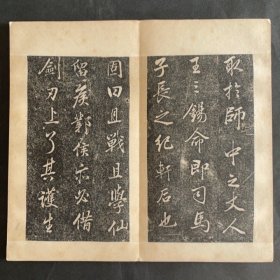 取於師中之丈人
王三錫命即司馬
子長之紀軒后也
固曰且戰且學仙
留侯鄴侯亦必借
劍刃上了其護生